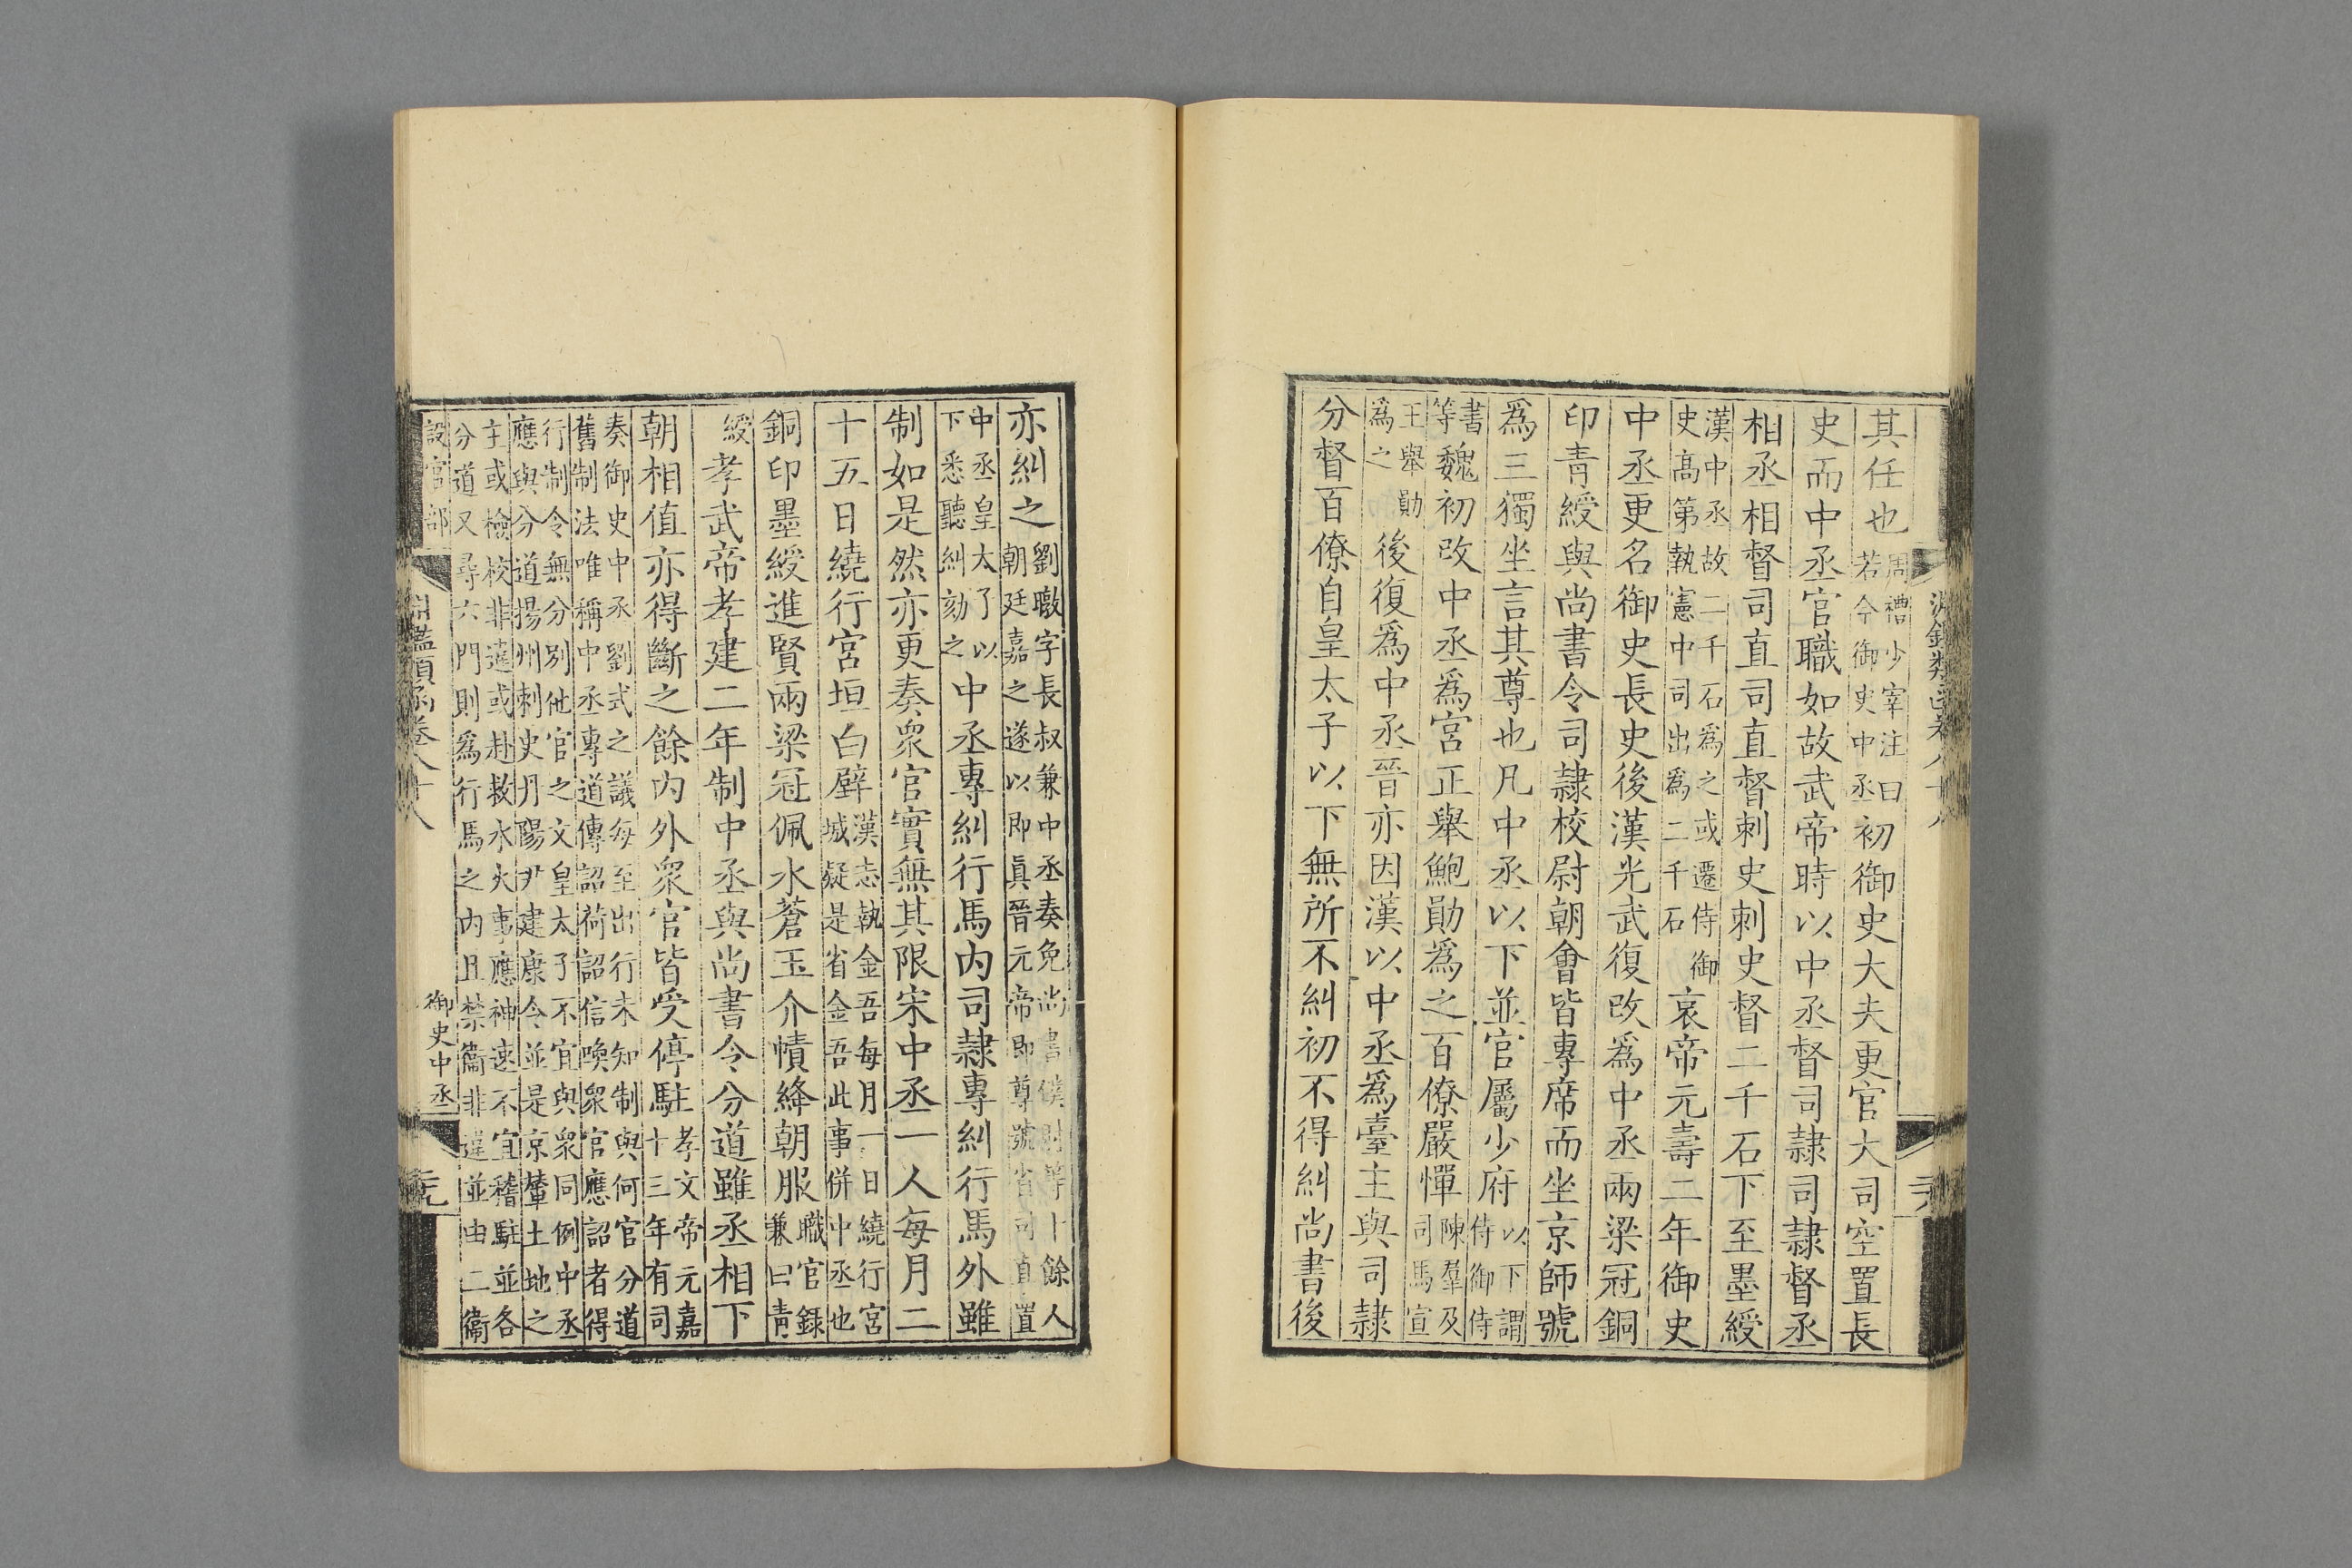 其任也周禮少宰注曰若今御史中丞初御史大夫更官大司空置長
史而中丞官職如故武帝時以中丞督司隸司隸督丞
相丞相督司直司直督刺史刺史督二千石下至墨綬
漢中丞故二千石爲之或遷侍御史高第執憲中司出爲二千石哀帝元壽二年御史
中丞更名御史長史後漢光武復改爲中丞兩梁冠銅
印青綬與尚書令司隸校尉朝會皆專席而坐京師號
爲三獨坐言其尊也凡中丞以下並官屬少府以下謂侍御侍
書等魏初改中丞爲宮正舉鮑勛爲之百僚嚴憚陳羣及司馬宣
王舉勛爲之後復爲中丞晉亦因漢以中丞爲臺主與司隸
分督百僚自皇太子以下無所不糾初不得糾尚書後
亦糾之劉暾字長叔兼中丞奏免尚書僕射等十餘人朝廷嘉之遂以即真晉元帝即尊號省司直置
中丞皇太子以下悉聽糾劾之中丞專糾行馬內司隸專糾行馬外雖
制如是然亦更奏衆官實無其限宋中丞一人每月二
十五日繞行宮垣白壁漢志執金吾每月一日繞行宮城疑是省金吾此事併中丞也
銅印墨綬進賢兩梁冠佩水蒼玉介幘絳朝服職官錄兼曰青
綬孝武帝孝建二年制中丞與尚書令分道雖丞相下
朝相值亦得斷之餘內外衆官皆受停駐孝文帝元嘉十三年有司
奏御史中丞劉式之議每至出行未知制與何官分道舊制法唯稱中丞專道傳詔荷詔信喚衆官應詔者得
行制令無分別他官之文皇太子不宜與衆同例中丞應與分道揚州刺史丹陽尹建康令並是京輦土地之
主或檢校非違或赴救水火事應神速不宜稽駐並各分道又尋六門則爲行馬之內且禁衞非違並由二衞
設官部
淵鑑類函卷八十八
御史中丞